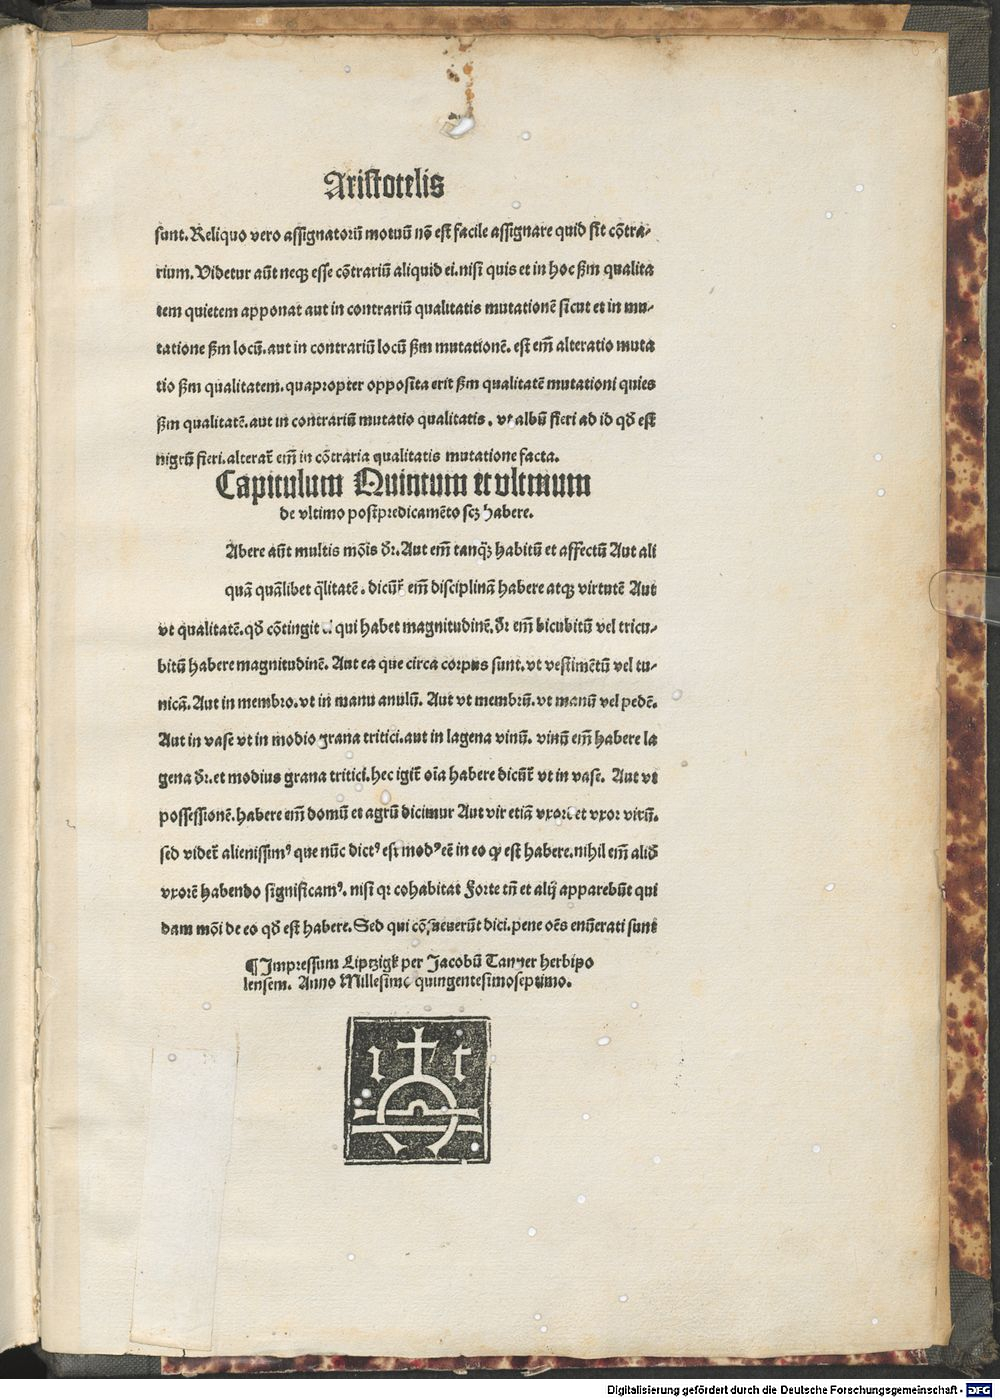 Aristotelis
sunt. Reliquo vero assignatorũ motuũ nõ est facile assignare quid sit cõtra-
rium. Videtur aũt neqȝ esse cõtrariũ aliquid ei. nisi quis et in hoc ẜm qualita
tem quietem apponat aut in contrariũ qualitatis mutationẽ sicut et in mu-
tatione ẜm locũ. aut in contrariũ locũ ẜm mutationẽ. est em̃ alteratio muta
tio ẜm qualitatem. quapropter opposita erit ẜm qualitatẽ mutationi quies
ẜm qualitatẽ. aut in contrariũ mutatio qualitatis. vt albũ fieri ad id qđ est
nigrũ fieri. alterat᷑ em̃ in cõtraria qualitatis mutatione facta.
Capitulum Quintum et vltimum
de vltimo postpredicamẽto scȝ habere.
Abere aũt multis mõis dr̃. Aut em̃ tanq̃ȝ habitũ et affectũ Aut ali
quã quãlibet q̃litatẽ. dicũt᷑ em̃ disciplinã habere atqȝ virtutẽ Aut
vt qualitatẽ. qđ cõtingit qui habet magnitudinẽ. dr̃ em̃ bicubitũ vel tricu-
bitũ habere magnitudinẽ. Aut ea que circa corpus sunt. vt vestimẽtũ vel tu-
nicã. Aut in membro. vt in manu anulũ. Aut vt membrũ. vt manũ vel pedẽ.
Aut in vase vt in modio grana tritici. aut in lagena vinũ. vinũ em̃ habere la
gena dr̃. et modius grana tritici. hec igit᷑ oĩa habere dicũt᷑ vt in vase. Aut vt
possessionẽ. habere em̃ domũ et agrũ dicimur Aut vir etiã vxorẽ et vxor virũ.
sed videt᷑ alienissimꝰ que nũc dictꝰ est modꝰ eẽ in eo qꝙ est habere. nihil em̃ aliđ
vxorẽ habendo significamꝰ. nisi qꝛ cohabitat Forte tñ et alij apparebũt qui
dam mõi de eo qđ est habere. Sed qui cõsueuerũt dici. pene oẽs enũerati sunt
¶ Impressum Liptzigk per Jacobũ Tanner herbipo
lensem. Anno Millesimo quingentesimoseptimo.
i t
Digitalisierung gefördert durch die Deutsche Forschungsgemeinschaft - DFG